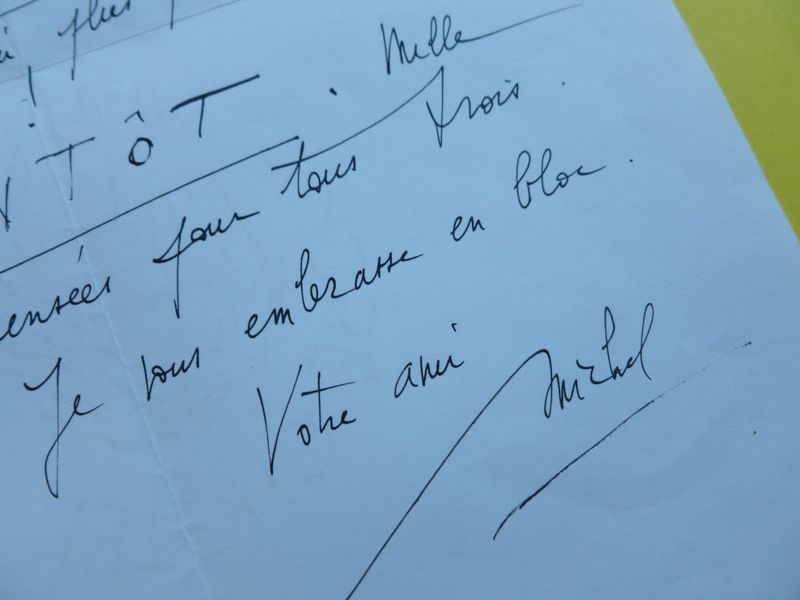 plus
NTÔT. Mille
ensées pour tous trois.
Je vous embrasse en bloc.
Votre ami
Michel